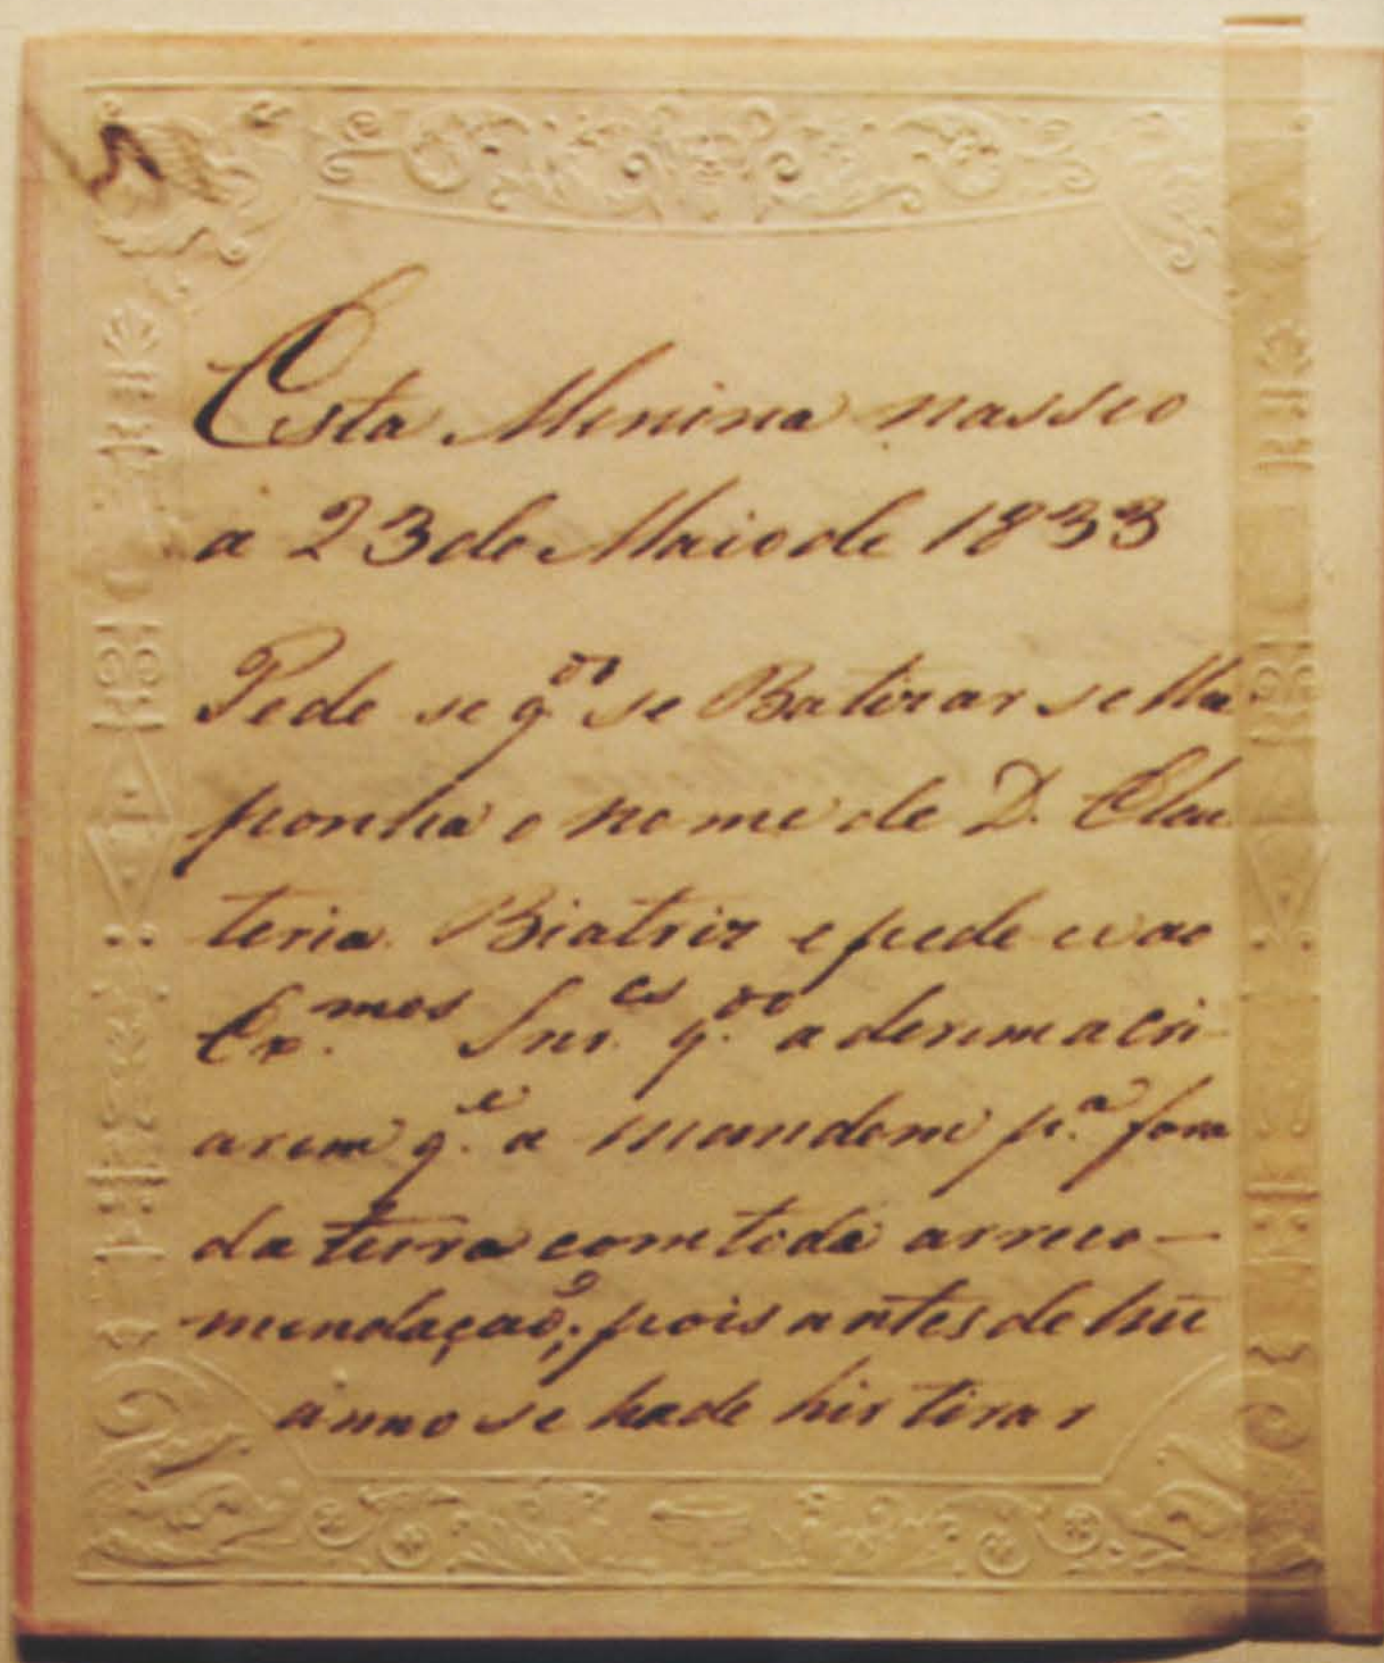 Esta Menina nasseo
a 23 de Maio de 1833
Pede se q.do se Batizar se lha
ponha o nome de D. Eleu
teria Biatriz e pede ce ao
Ex.mos Snr.es q.do a derem a cri-
arem q.e a mandem p.a fora
da terra com toda arreco-
mendação; pois antes de hũ
anno se hade hir tirar